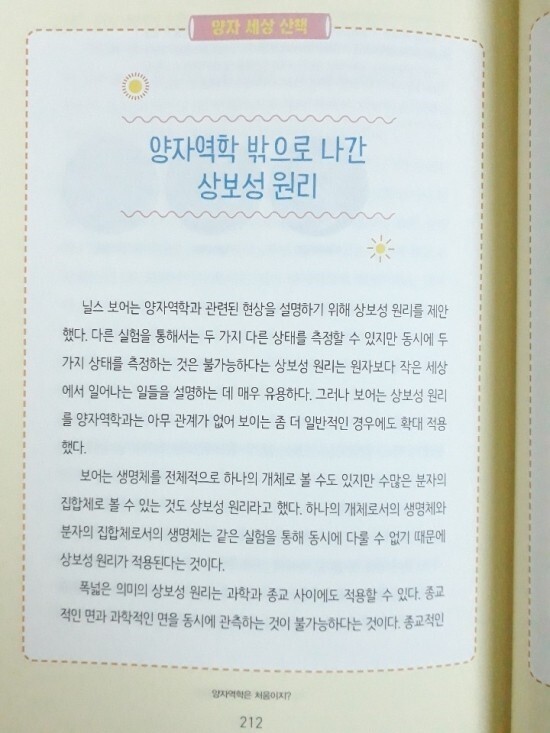 양자 세상 산책
양자역학 밖으로 나간
상보성 원리
닐스 보어는 양자역학과 관련된 현상을 설명하기 위해 상보성 원리를 제안
했다. 다른 실험을 통해서는 두 가지 다른 상태를 측정할 수 있지만 동시에 두
가지 상태를 측정하는 것은 불가능하다는 상보성 원리는 원자보다 작은 세상
에서 일어나는 일들을 설명하는 데 매우 유용하다. 그러나 보어는 상보성 원리
를 양자역학과는 아무 관계가 없어 보이는 좀 더 일반적인 경우에도 확대 적용
했다.
보어는 생명체를 전체적으로 하나의 개체로 볼 수도 있지만 수많은 분자의
집합체로 볼 수 있는 것도 상보성 원리라고 했다. 하나의 개체로서의 생명체와
분자의 집합체로서의 생명체는 같은 실험을 통해 동시에 다룰 수 없기 때문에
상보성 원리가 적용된다는 것이다.
폭넓은 의미의 상보성 원리는 과학과 종교 사이에도 적용할 수 있다. 종교
적인 면과 과학적인 면을 동시에 관측하는 것이 불가능하다는 것이다. 종교적인
양자역학은 처음이지?
212